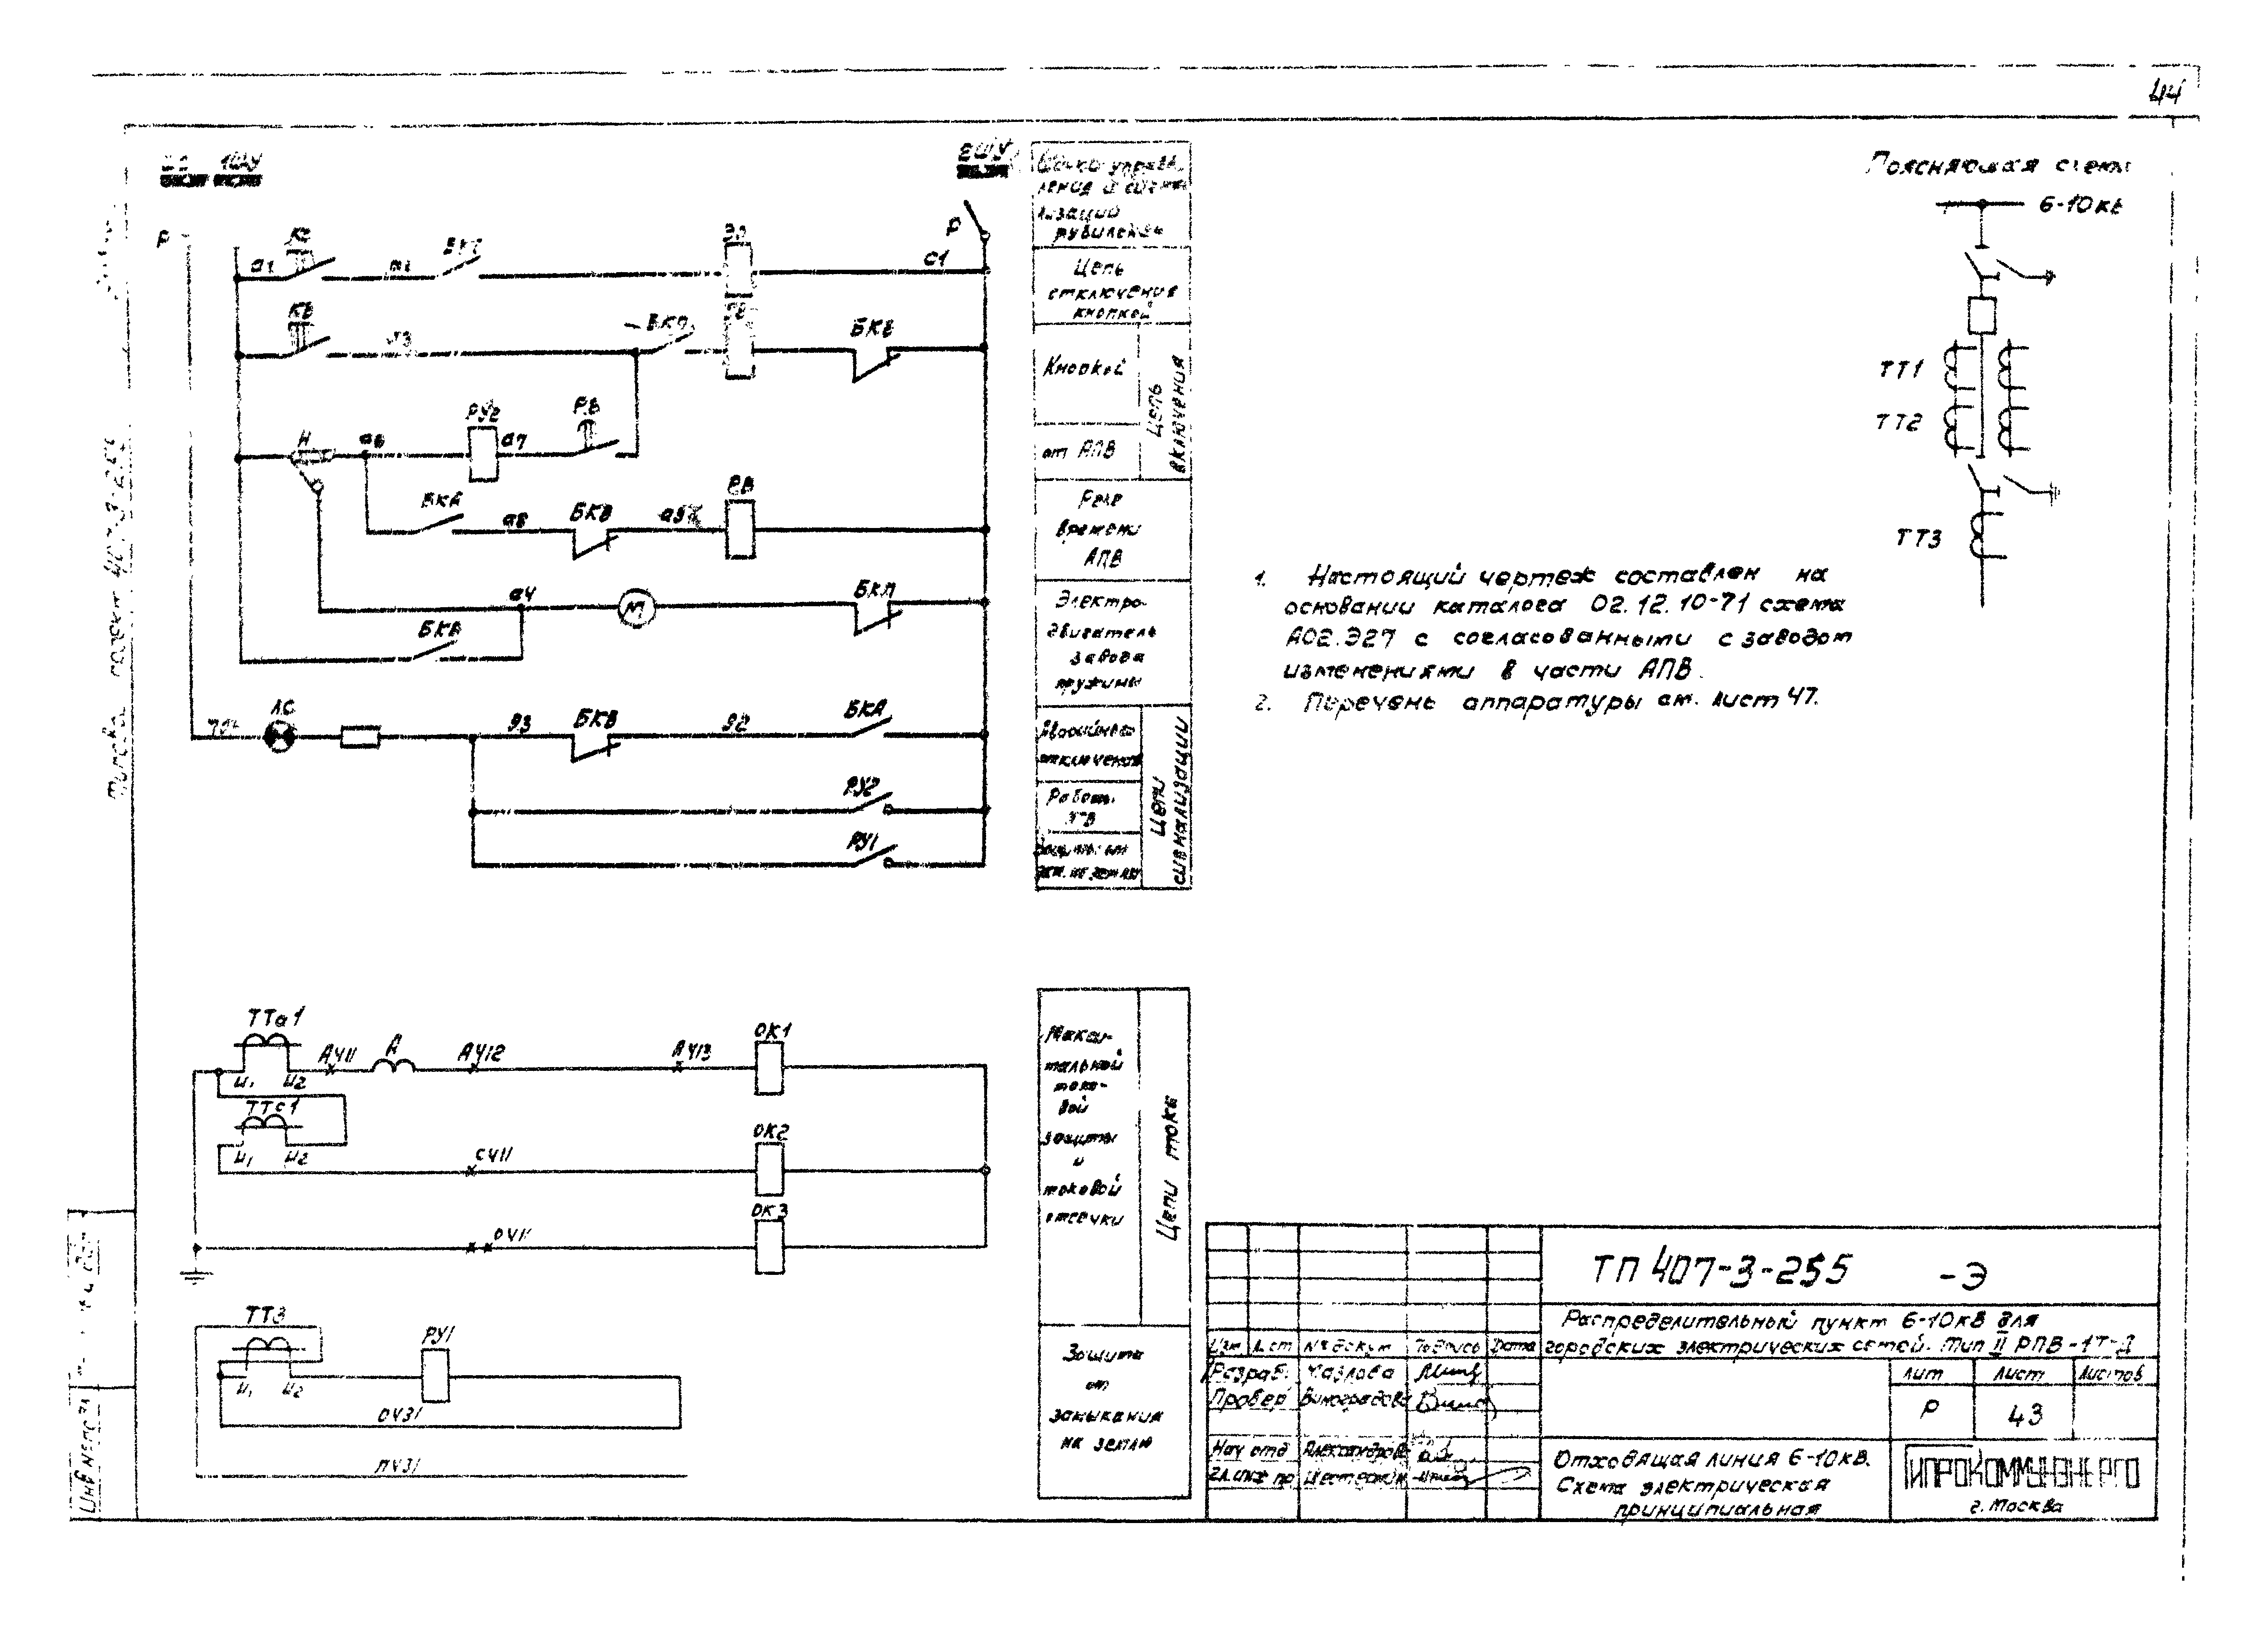 44
1ШУ
2ШУ
Р
Р
а1
КО
ЭО
С1
КВ
БКП
БКВ
Н
а6
РУ2
а7
РВ
БКА
а8
БКВ
а9
РВ
а4
М
БКП
БКА
ЛС
93
БКВ
92
БКА
РУ2
РУ1
Шинки управ-
ления и сигна-
лизации
рубильник
Цепь
отключения
кнопкой
Кнопкой
от АПВ
Цепь
включения
Реле
времени
АПВ
Электро-
двигатель
завода
пружины
Аварийное
отключение
Работа
АПВ
Защиты от
зам. на землю
Цепи
сигнализации
Поясняющая схема
6-10кВ
ТТ1
ТТ2
ТТ3
1. Настоящий чертеж составлен на
основании каталога 02.12.10-71 схема
А02.Э27 с согласованными с заводом
изменениями в части АПВ.
2. Перечень аппаратуры см. лист 47.
Типовой проект 407-3-255
ТТа1
И1 И2
А411
А
А412
А413
ОК1
ТТс1
И1 И2
С411
ОК2
О411
ОК3
ТТ3
И1 И2
РУ1
О431
Л431
Макси-
мальной
токо-
вой
защиты
и
токовой
отсечки
Цепи тока
Защита
от
замыкания
на землю
Инв № подл
ТП 407-3-255 -Э
Распределительный пункт 6-10кВ для
городских электрических сетей. Тип II РПВ-1Т-Д
Изм Лист № докум Подпись Дата
Разраб. Чазлова
Провер Виноградова
Нач отд Александров
Гл. инж пр Шестеркин
Лит Лист Листов
Р 43
Отходящая линия 6-10кВ.
Схема электрическая
принципиальная
ГИПРОКОММУНЭНЕРГО
г. Москва